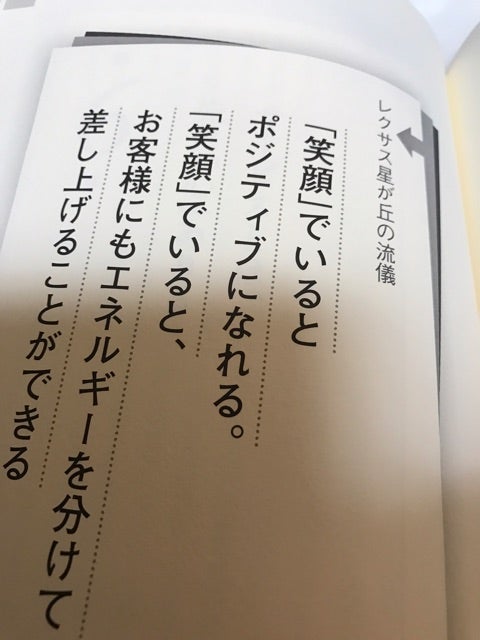 レクサス星が丘の流儀
「笑顔」でいると
ポジティブになれる。
「笑顔」でいると、
お客様にもエネルギーを分けて
差し上げることができる